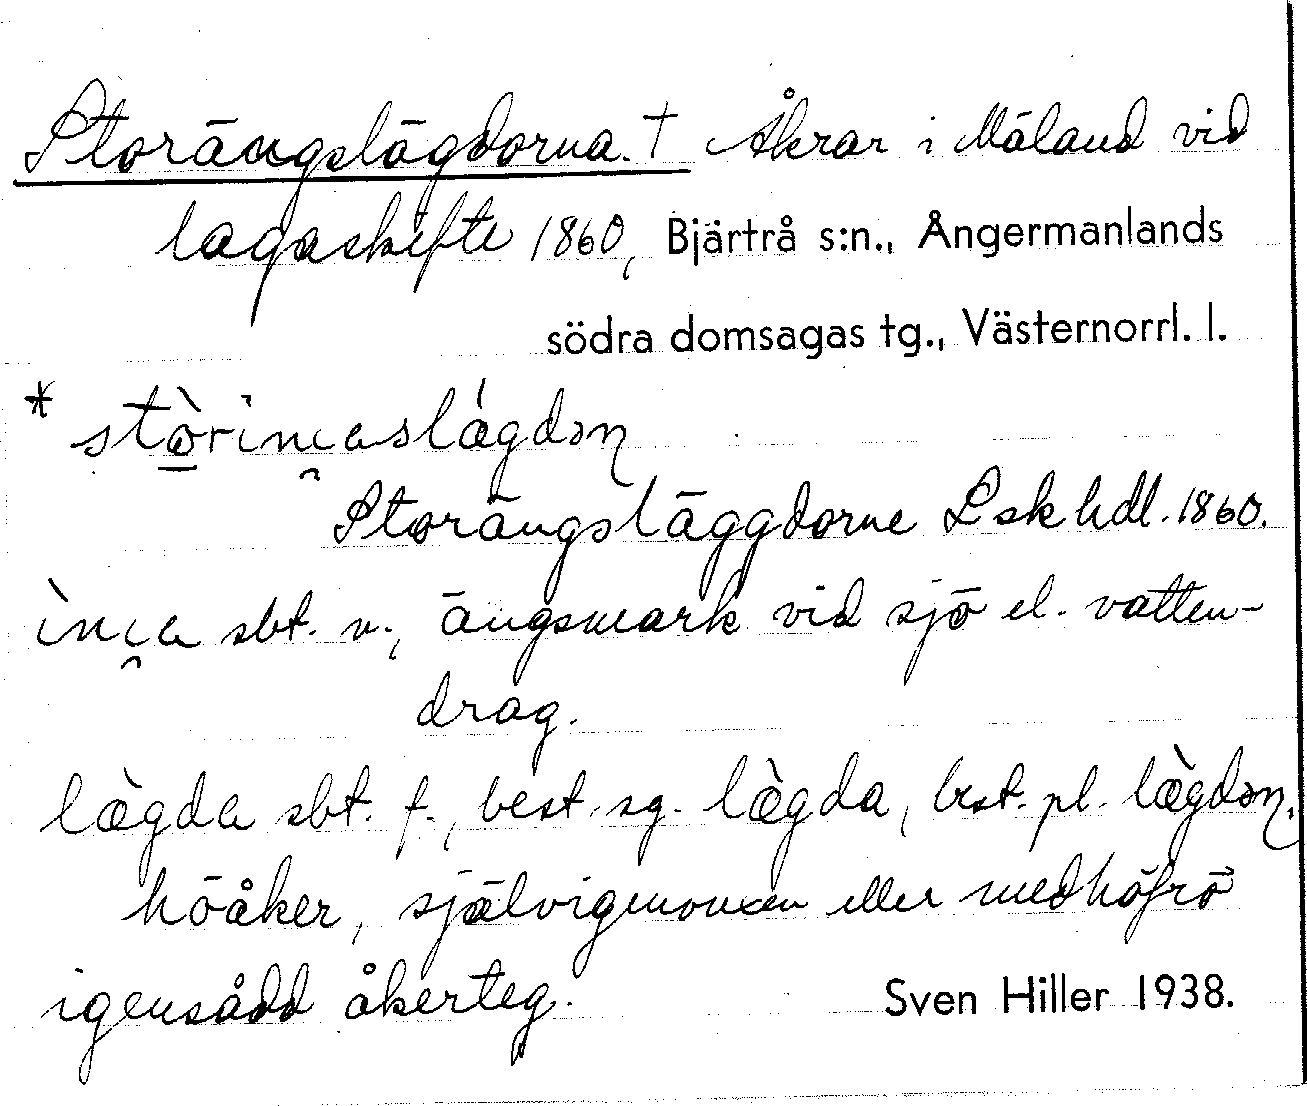 Storängslägdorna. † Åkrar i Mäland vid
lagaskifte 1860, Bjärtrå s:n., Ångermanlands
södra domsagas tg., Västernorrl. l.
* stòrinɕaslágdɘn
Storängsläggdorne Lskhdl. 1860.
ìnɕa sbt. n., ängsmark vid sjö el. vatten-
drag.
lὰgda sbt. f., best. sg. lὰgda, best. pl. lὰgdɘn.
höåker, självigenvuxen eller med höfrö
igensådd åkerteg. Sven Hiller 1938.